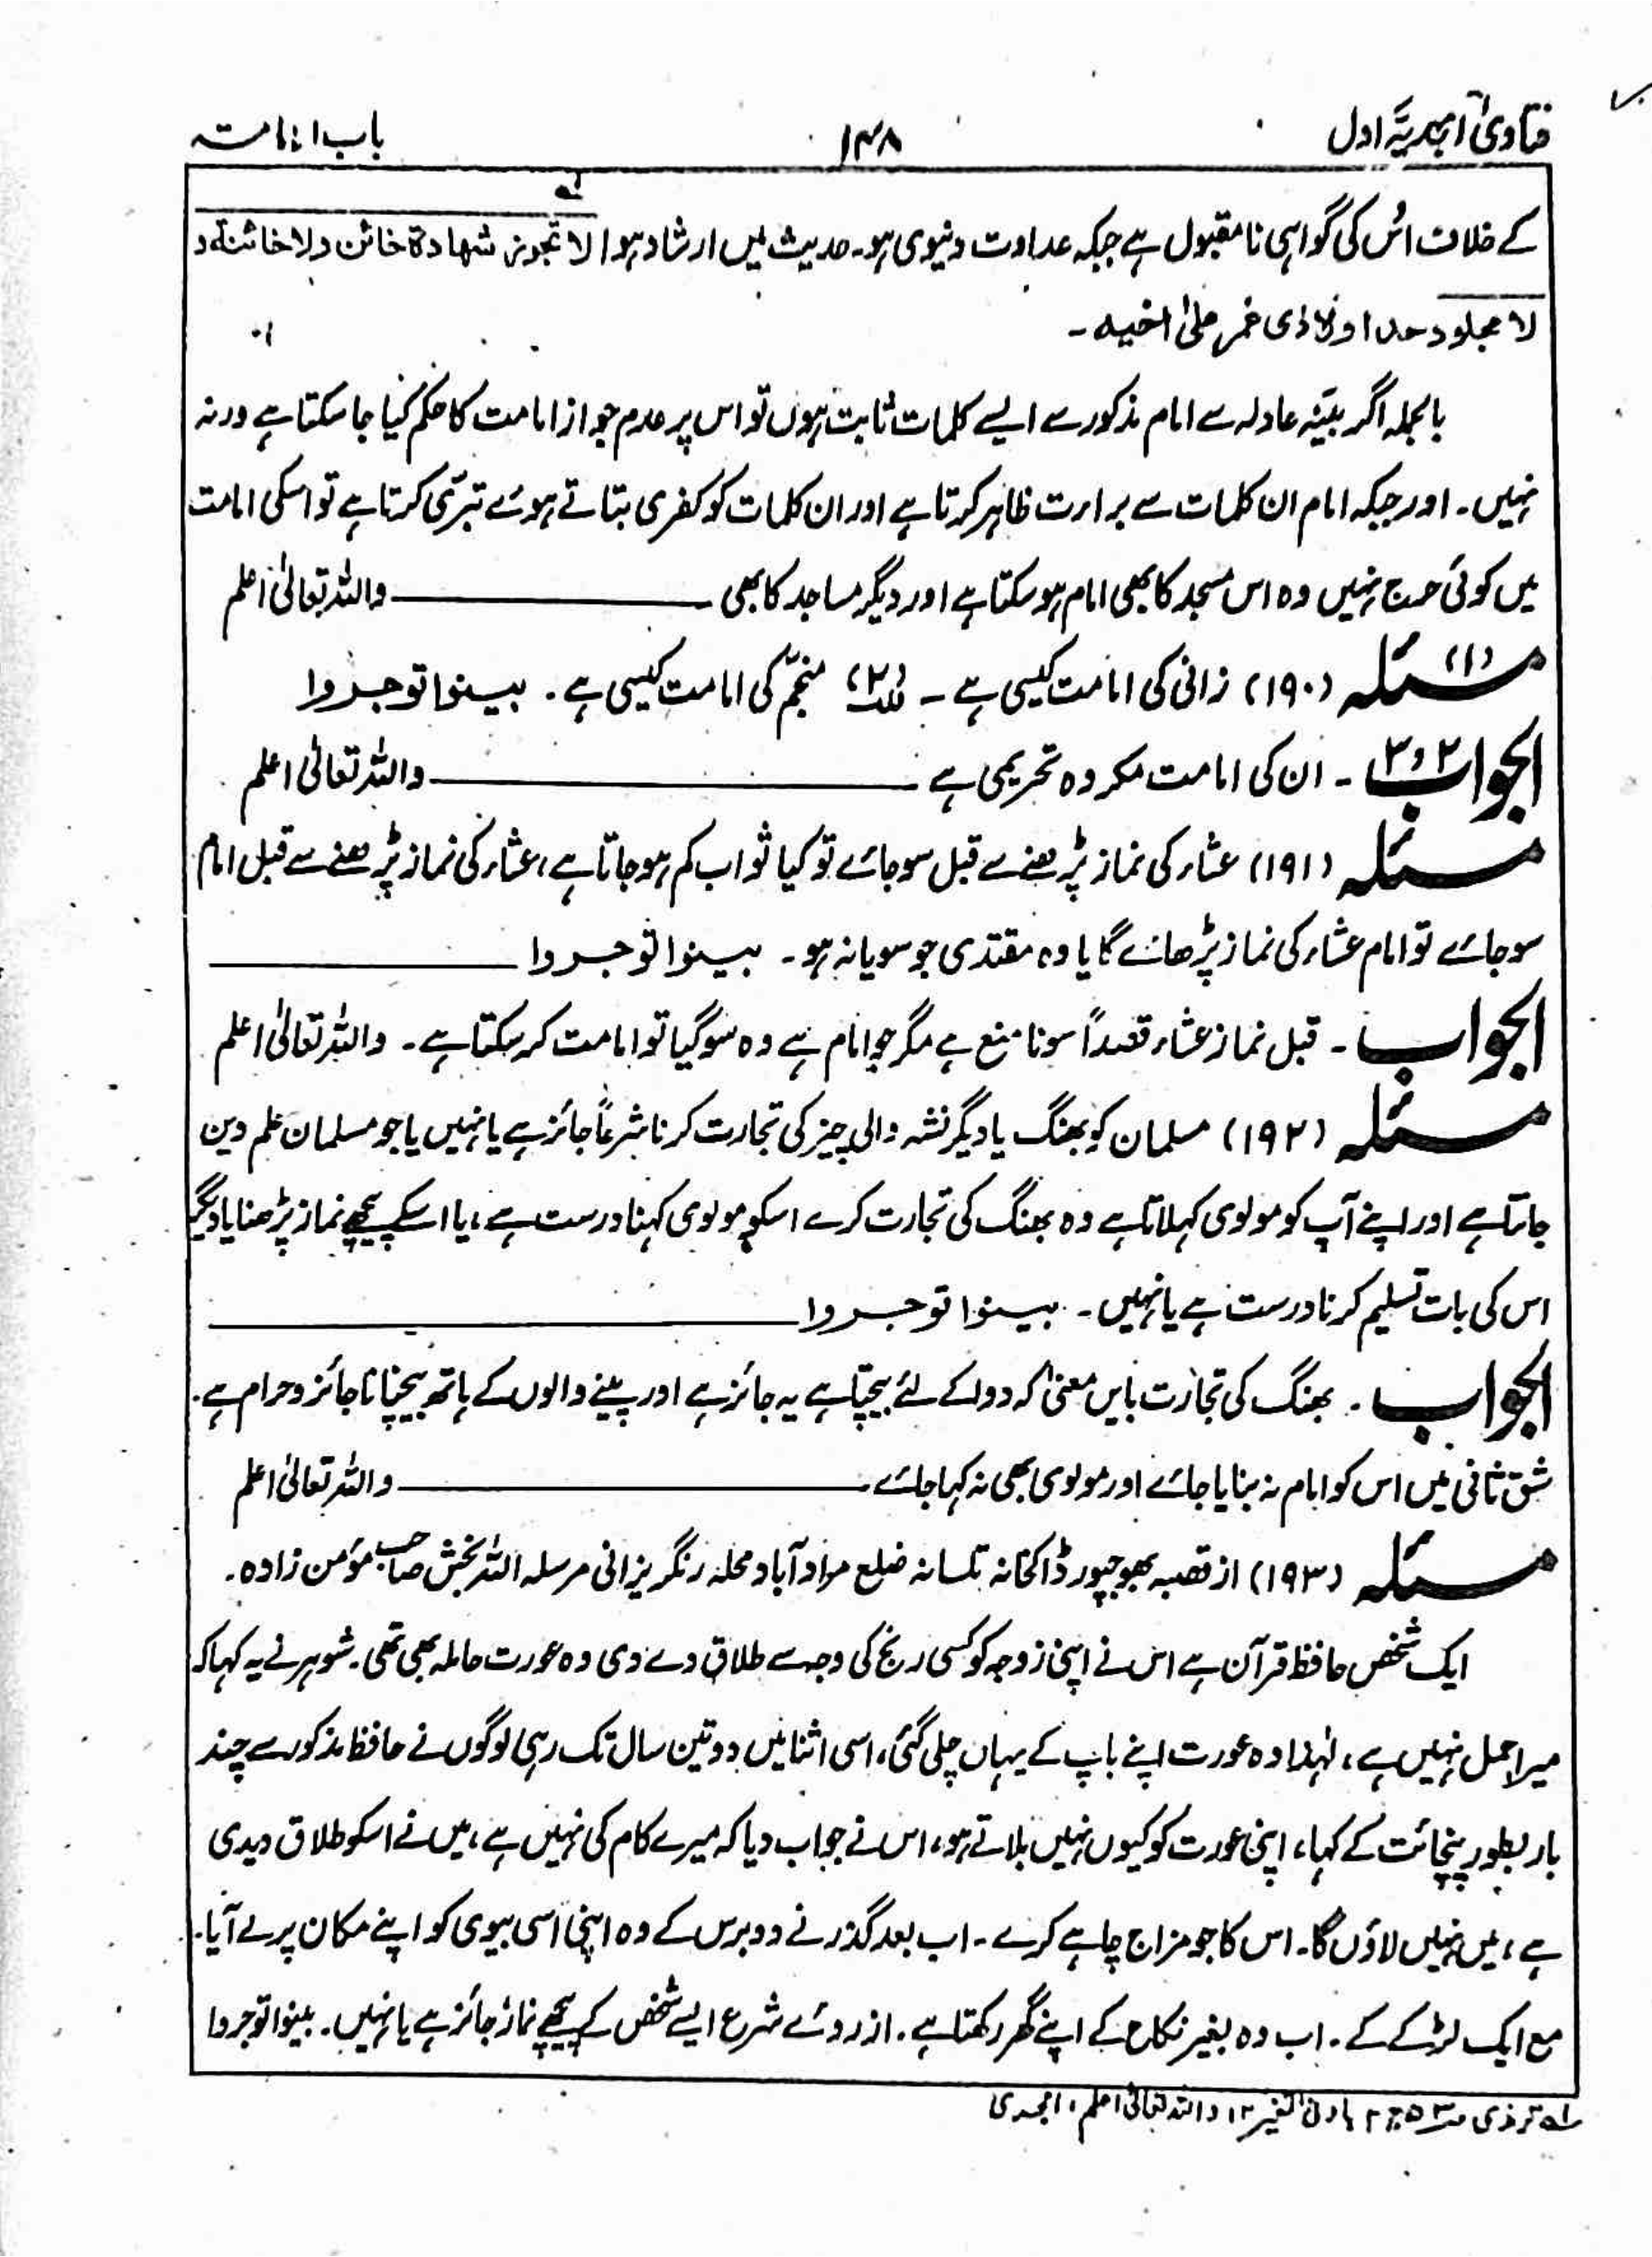 فتاویٰ امجدیہ اول
۱۴۸
باب الامامتہ
کے خلاف اُس کی گواہی نامقبول ہے جبکہ عداوت دنیوی ہو۔ حدیث میں ارشاد ہوا لا تجوز شهادة خائن ولا خائنة و
لا مجلود حدا ولا ذی غمر علیٰ اخیہ ۔
بالجملہ اگر بیّنہ عادلہ سے امام مذکور سے ایسے کلمات ثابت ہوں تو اس پر عدم جواز امامت کا حکم کیا جاسکتا ہے ورنہ
نہیں۔ اور جبکہ امام ان کلمات سے براءت ظاہر کرتا ہے اور ان کلمات کو کفری بتاتے ہوئے تبرّی کرتا ہے تو اسکی امامت
میں کوئی حرج نہیں وہ اس مسجد کا بھی امام ہوسکتا ہے اور دیگر مساجد کا بھی ـــــ واللہ تعالیٰ اعلم
مسئلہ (۱) (۱۹۰) زانی کی امامت کیسی ہے ۔ (۲) منجّم کی امامت کیسی ہے ۔ بینوا توجروا
الجواب ۲و۳ ۔ ان کی امامت مکروہ تحریمی ہے ـــــ واللہ تعالیٰ اعلم
مسئلہ (۱۹۱) عشاء کی نماز پڑھنے سے قبل سوجائے تو کیا ثواب کم ہوجاتا ہے، عشاء کی نماز پڑھنے سے قبل امام
سوجائے تو امام عشاء کی نماز پڑھائے گا یا وہ مقتدی جو سویا نہ ہو ۔ بینوا توجروا ـــــ
الجواب ۔ قبل نماز عشاء قصداً سونا منع ہے مگر جو امام ہے وہ سوگیا تو امامت کرسکتا ہے ۔ واللہ تعالیٰ اعلم
مسئلہ (۱۹۲) مسلمان کو بھنگ یا دیگر نشہ والی چیز کی تجارت کرنا شرعاً جائز ہے یا نہیں یا جو مسلمان علم دین
جانتا ہے اور اپنے آپ کو مولوی کہلاتا ہے وہ بھنگ کی تجارت کرے اسکو مولوی کہنا درست ہے، یا اسکے پیچھے نماز پڑھنا یا دیگر
اس کی بات تسلیم کرنا درست ہے یا نہیں ۔ بینوا توجروا ـــــ
الجواب ۔ بھنگ کی تجارت بایں معنیٰ کہ دوا کے لئے بیچتا ہے یہ جائز ہے اور پینے والوں کے ہاتھ بیچنا ناجائز و حرام ہے۔
شق ثانی میں اس کو امام نہ بنایا جائے اور مولوی بھی نہ کہا جائے ـــــ واللہ تعالیٰ اعلم
مسئلہ (۱۹۳) از قصبہ بھوجپور ڈاکخانہ تکسانہ ضلع مرادآباد محلہ رنگریزانی مرسلہ اللہ بخش صاحب مؤمن زادہ ۔
ایک شخص حافظ قرآن ہے اس نے اپنی زوجہ کو کسی رنج کی وجہ سے طلاق دے دی وہ عورت حاملہ بھی تھی۔ شوہر نے یہ کہا کہ
میرا حمل نہیں ہے، لہٰذا وہ عورت اپنے باپ کے یہاں چلی گئی، اسی اثنا میں دو تین سال تک رہی لوگوں نے حافظ مذکور سے چند
بار بطور پنچائت کے کہا، اپنی عورت کو کیوں نہیں بلاتے ہو، اس نے جواب دیا کہ میرے کام کی نہیں ہے، میں نے اسکو طلاق دیدی
ہے، میں نہیں لاؤں گا۔ اس کا جو مزاج چاہے کرے ۔ اب بعد گذرنے دو برس کے وہ اپنی اسی بیوی کو اپنے مکان پر لے آیا۔
مع ایک لڑکے کے ۔ اب وہ بغیر نکاح کے اپنے گھر رکھتا ہے ۔ از روئے شرع ایسے شخص کے پیچھے نماز جائز ہے یا نہیں ۔ بینوا توجروا
لہ ترمذی ص۵۳ ج۲ ۱۲ واللہ تعالیٰ اعلم، امجدی